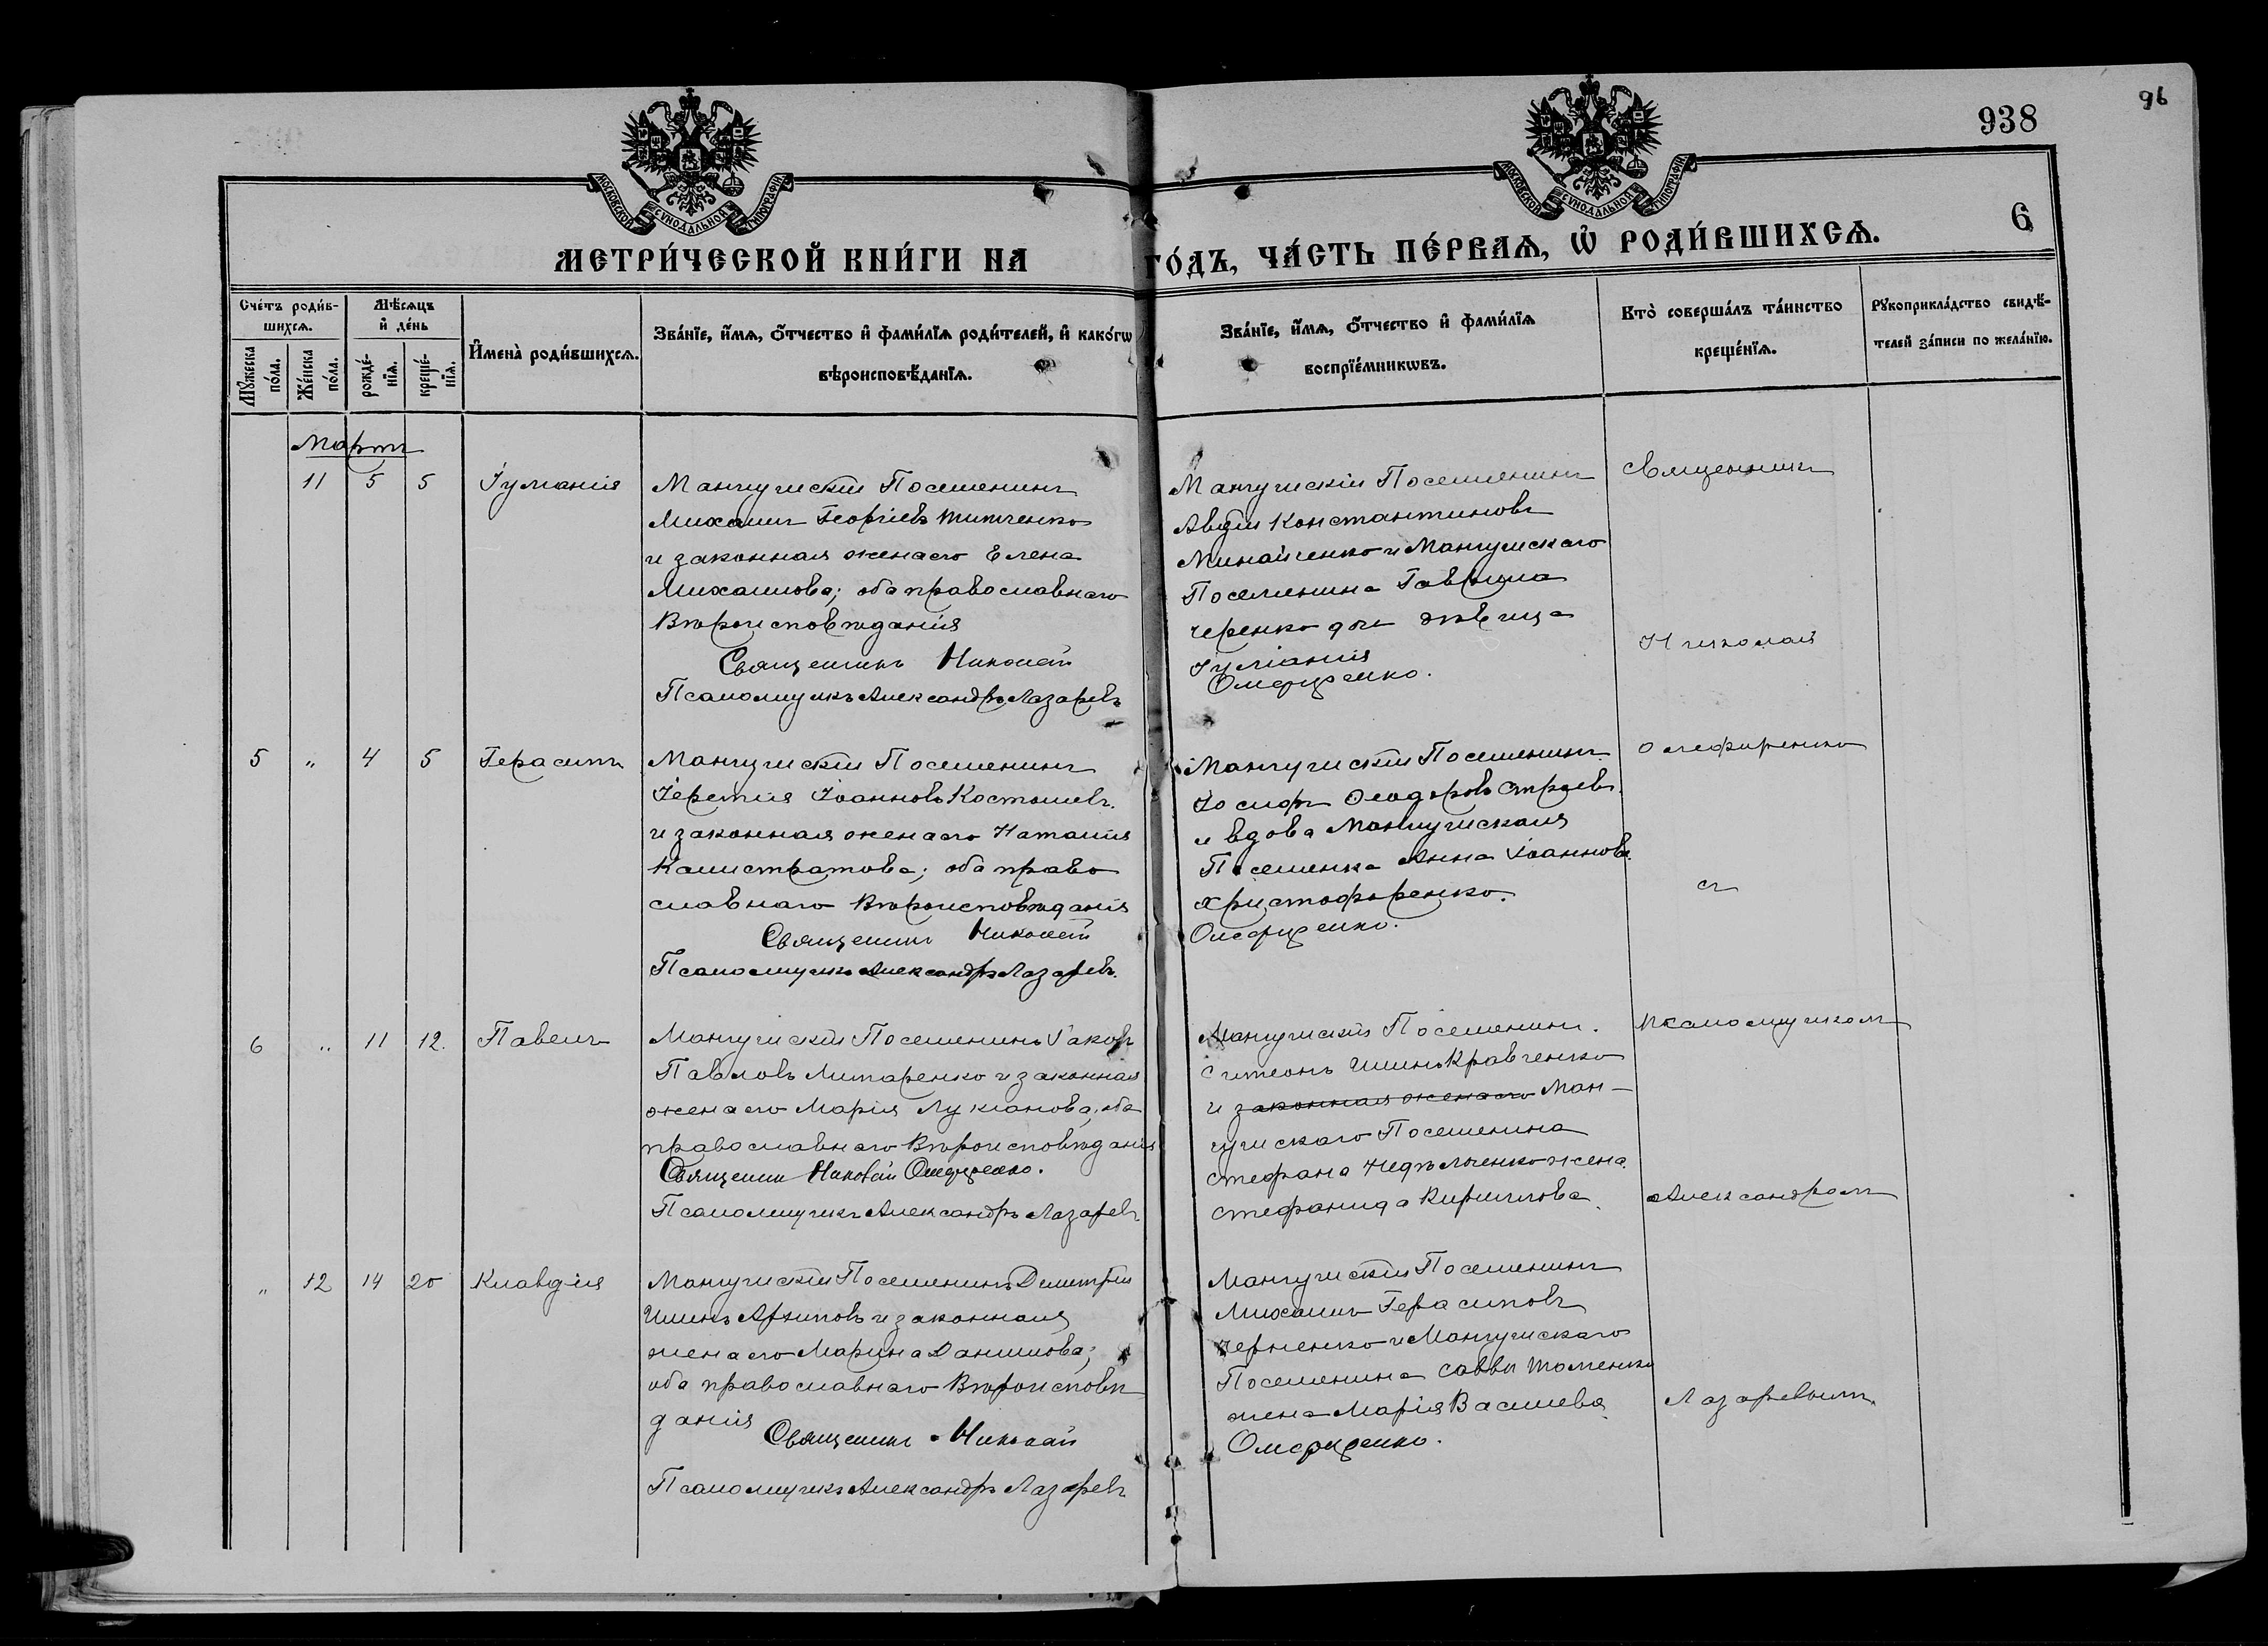 96
938
6
МОСКОВСКОЙ СѴНОДАЛЬНОЙ ТИПОГРАФІИ
МОСКОВСКОЙ СѴНОДАЛЬНОЙ ТИПОГРАФІИ
МЕТРИ́ЧЕСКОЙ КНИ́ГИ НА ГО́ДЪ, ЧА́СТЬ ПЕ́РВАѦ, Ѡ҆ РОДИ́ВШИХСѦ.
Сче́тъ роди́в-
шихсѧ.
Мѣ́сѧцъ
и҆ де́нь
Мꙋ́жеска
по́ла.
Же́нска
по́ла.
рожде́-
нїѧ.
креще́-
нїѧ.
И҆мена̀ роди́вшихсѧ.
Зва́нїе, и҆́мѧ, ѻ҆́тчество и҆ фами́лїѧ роди́телей, и҆ како́гѡ
вѣроисповѣ́данїѧ.
Зва́нїе, и҆́мѧ, ѻ҆́тчество и҆ фами́лїѧ
воспрїе́мникѡвъ.
Кто̀ соверша́лъ та́инство
креще́нїѧ.
Рꙋкоприкла́дство свидѣ́-
телей за́писи по жела́нїю.
Мартъ
11 5 5 Іуліанія
Мангушскій Поселенинъ
Михаилъ Георгіевъ Титченко
и законная жена его Елена
Михаилова; оба православнаго
Вѣроисповѣданія
Священникъ Николай
Псаломщикъ Александръ Лазаревъ
Мангушскій Поселенинъ
Авдій Константиновъ
Минайченко и Мангушскаго
Поселенина Гавріила
дѣвица
Іуліанія
Олефиренко.
Священникъ
Николай
5 " 4 5 Герасимъ
Мангушскій Поселенинъ
Іеремія Іоанновъ Костошевъ
и законная жена его Наталія
Калистратова; оба право
славнаго Вѣроисповѣданія
Священникъ Николай
Псаломщикъ Александръ Лазаревъ.
Мангушскій Поселенинъ
Іосифъ Ѳеодоровъ
и вдова Мангушская
Поселенка Анна Іоаннова
Христофоренко.
Олефиренко.
Олефиренко
съ
6 " 11 12. Павелъ
Мангушскій Поселенинъ Іаковъ
Павловъ Литаренко и законная
жена его Марія Лукіанова; оба
православнаго Вѣроисповѣданія
Священникъ Николай Олефиренко.
Псаломщикъ Александръ Лазаревъ
Мангушскій Поселенинъ
Симеонъ Ильинъ Кравченко
и законная жена его Ман-
гушскаго Поселенина
Стефана жена
Стефанида Кириллова
псаломщикомъ
Александромъ
" 12 14 20 Клавдія
Мангушскій Поселенинъ Димитрій
Ильинъ Архиповъ и законная
жена его Марина Даниилова;
оба православнаго Вѣроисповѣ
данія
Священникъ Николай
Псаломщикъ Александръ Лазаревъ
Мангушскій Поселенинъ
Михаилъ Герасимовъ
Черненко и Мангушскаго
Поселенина Саввы Томенко
жена Марія Васильева
Олефиренко.
Лазаревымъ